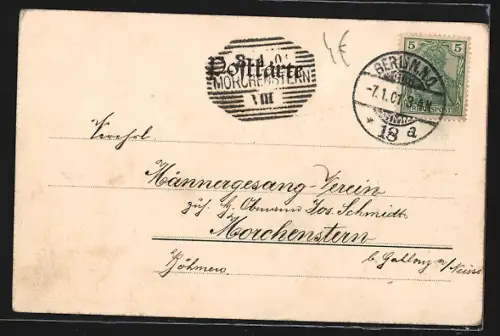 4€
5 5
Postkarte
MORCHENSTERN
VIII
BERLIN N.O.
-7.1.01.
* 18 a
Verehrl.
Männergesang-Verein
zuh. H. Obmann Jos. Schmidt
Morchenstern
Böhmen.
b. Gablonz a/Neisse